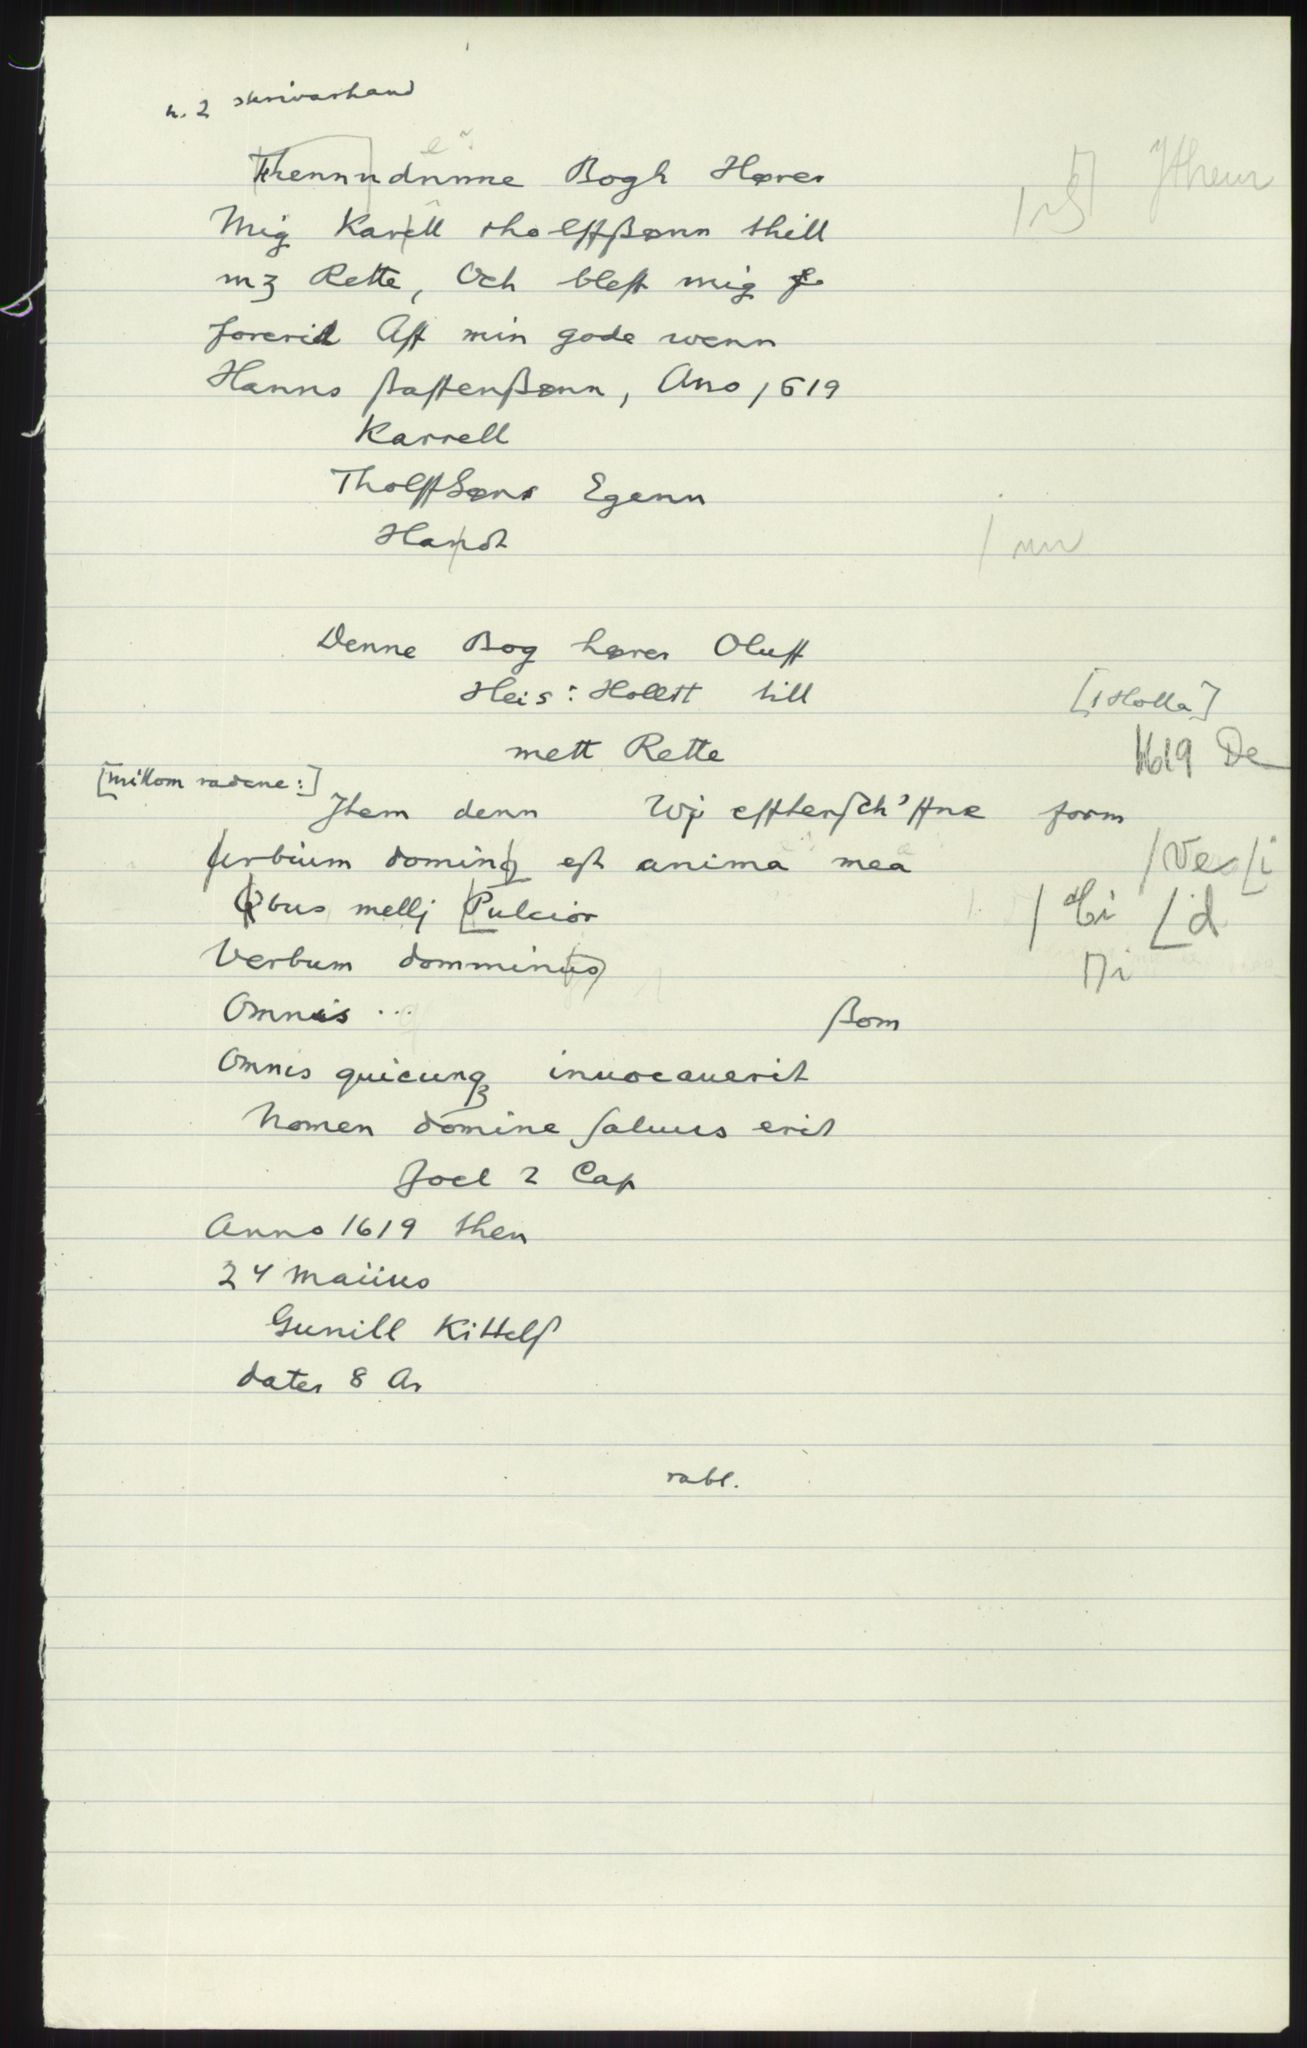 n. 2 skrivarhand
Thennn dnnne Bogh Hører
Mig Karell tholffßønn thill
mʒ Rette, Och bleff mig
forerid Aff min gode wenn
Hanns ßaffenßønn, Ano 1619
Karrell
Tholffsøns Egenn
Handt
/ nn
Denne Bog hører Oluff
Heis: Hollett till [i Holla]
mett Rette 1619 De
[millom radene:]
Jtem denn Wij effterſch'ffne form
urbium dominꝫ eſt anima mea /Ves [i
bus mellj Pulcior / [d
Verbum domminus ⌈⌉i
Omnis ... ßom
Omnis quicunqꝫ inuocauerit
Nomen domine ſaluus erit
Joel 2 Cap
Anno 1619 then
24 Maiius
Gunill Kittelß
dater 8 Ar
rabl.